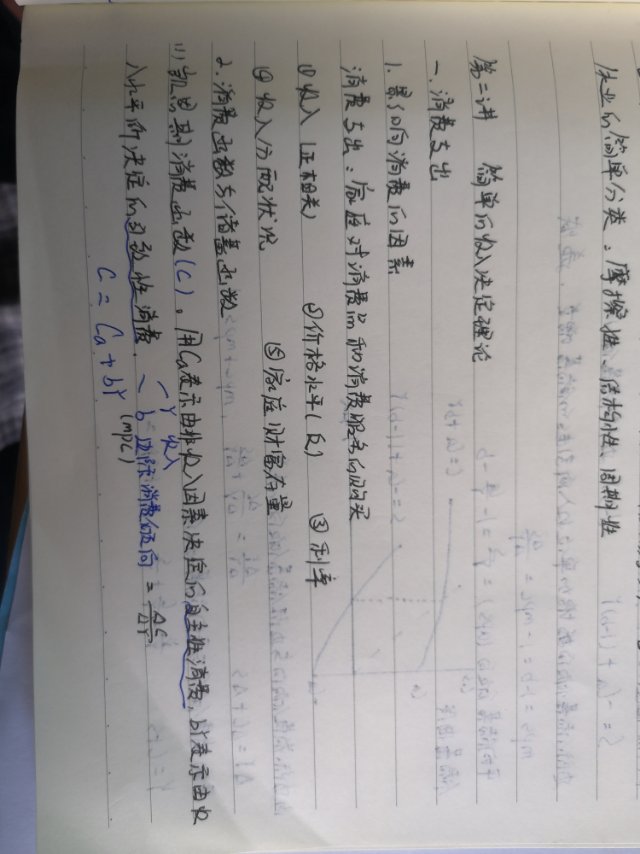 失业的简单分类：摩擦性、结构性、周期性
第二讲 简单的收入决定理论
一. 消费支出
1. 影响消费的因素
消费支出：家庭对消费品和消费服务的购买
①收入(正相关) ②价格水平(反) ③利率
④收入分配状况 ⑤家庭财富存量
2. 消费函数与储蓄函数
(1) 凯恩斯消费函数(C)。用Ca表示由非收入因素决定的自主性消费, bY表示由收
入水平所决定的引致性消费.
Y 收入
b 边际消费倾向 = ΔC/ΔY
(MPC)
C = Ca + bY